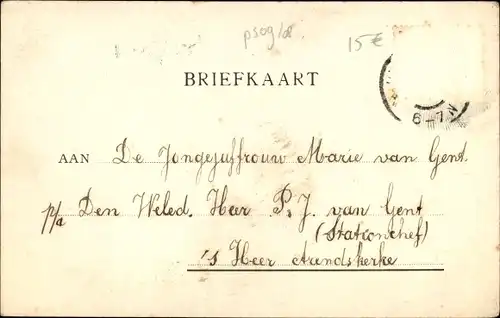 psog/al
15 €
BRIEFKAART
6-7 N
AAN De Jongejuffrouw Marie van Gent.
p/a Den Weled. Heer P. J. van Gent
(Stationchef)
's Heer Arendskerke